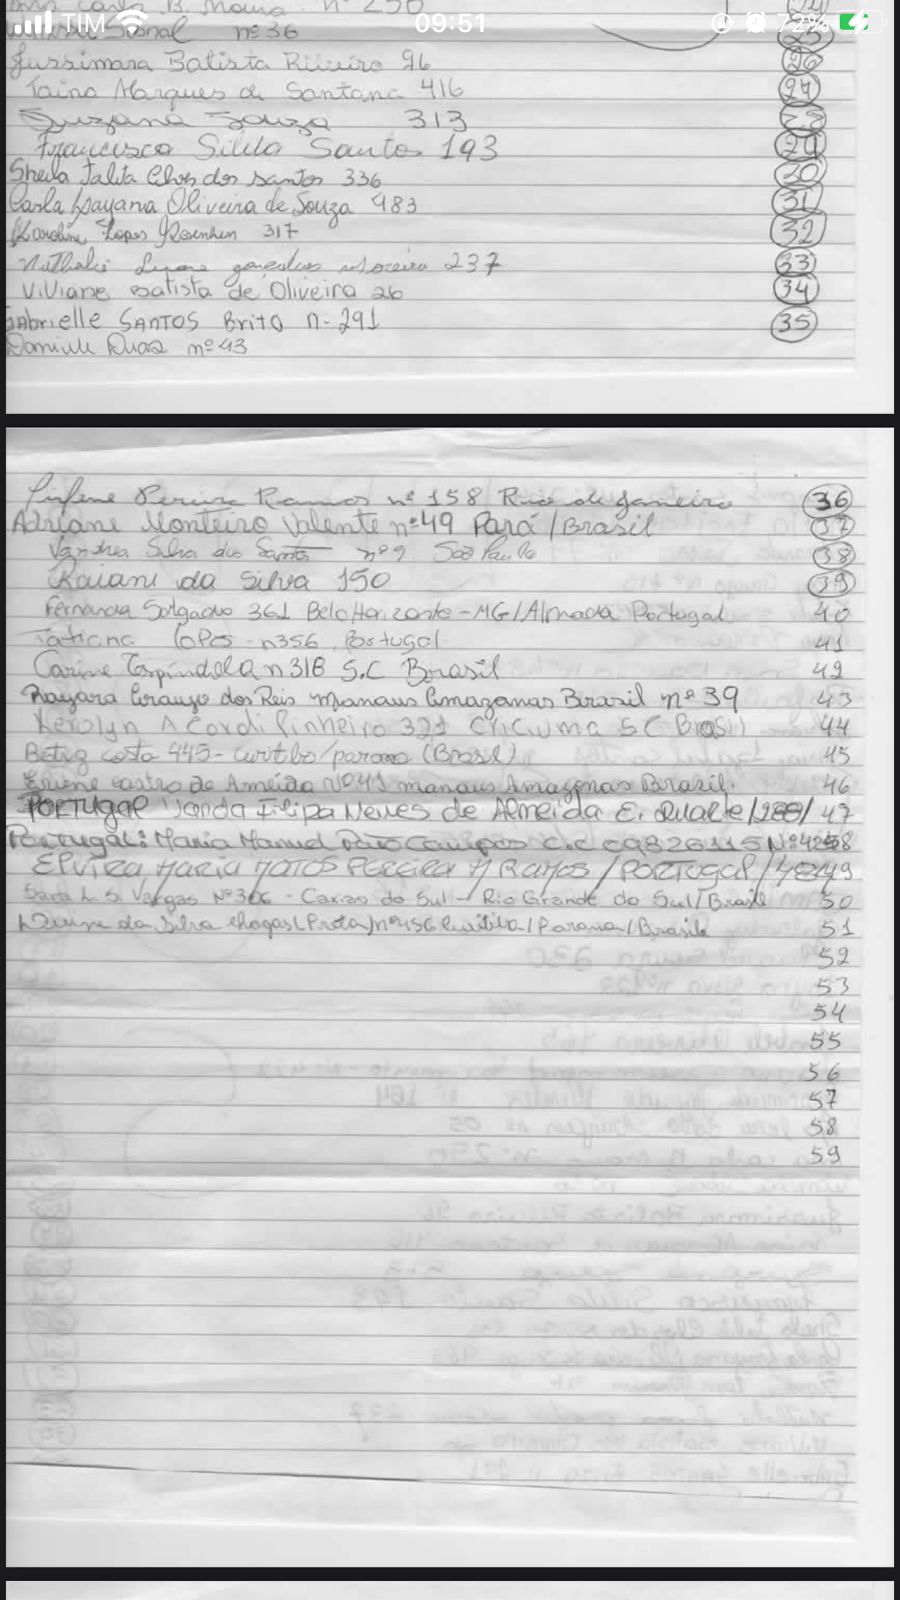 Carla B. n° 250
TIM 09:51 72%
nº 36 25
Jussimara Batista Ribeiro 96 26
Taina Marques de Santana 416 27
Suzana Souza 313 28
Francisca Silva Santos 193 29
Sheila Talita Alves dos Santos 336 30
Carla Dayana Oliveira de Souza 483 31
Karoline Lopes 317 32
Nathalie gonçalves Moreira 237 33
Viviane Batista de Oliveira 26 34
GAbrielle SANTOS Brito n- 291 35
nº 43
Pereira Ramos nº 158 Rio de Janeiro 36
Adriane Monteiro Valente nº49 Pará/Brasil 37
Vandrea Silva dos Santos nº 9 São Paulo 38
Raiani da Silva 150 39
Fernanda Salgado 361 Belo Horizonte - MG/Almada Portugal 40
Tatiana Lopes - n356 Portugal 41
Carine Espindola n 318 S.C Brasil 42
Rayara Araujo dos Reis manaus Amazonas Brasil nº 39 43
Kerolyn A Cordi Pinheiro 321 Criciuma SC Brasil 44
Costa 445- curitba/parana (Brasil) 45
castro de Ameida Nº 41 manaus Amazonas Brasil. 46
PORTUGAL Vanda Filipa Neves de Almeida E. Duarte/288/ 47
Portugal: Maria Manuel Campos C.C 09826115 Nº 425 48
ELVIRA MARIA MATOS PEREIRA M RAMOS / PORTUGAL / 49
Sara L. S. Vargas Nº 306 - Caxias do Sul - Rio Grande do Sul/Brasil 50
da Silva Chagas (Prota) nº 156 Curitiba / Parana / Brasil 51
52
53
54
55
56
57
58
59